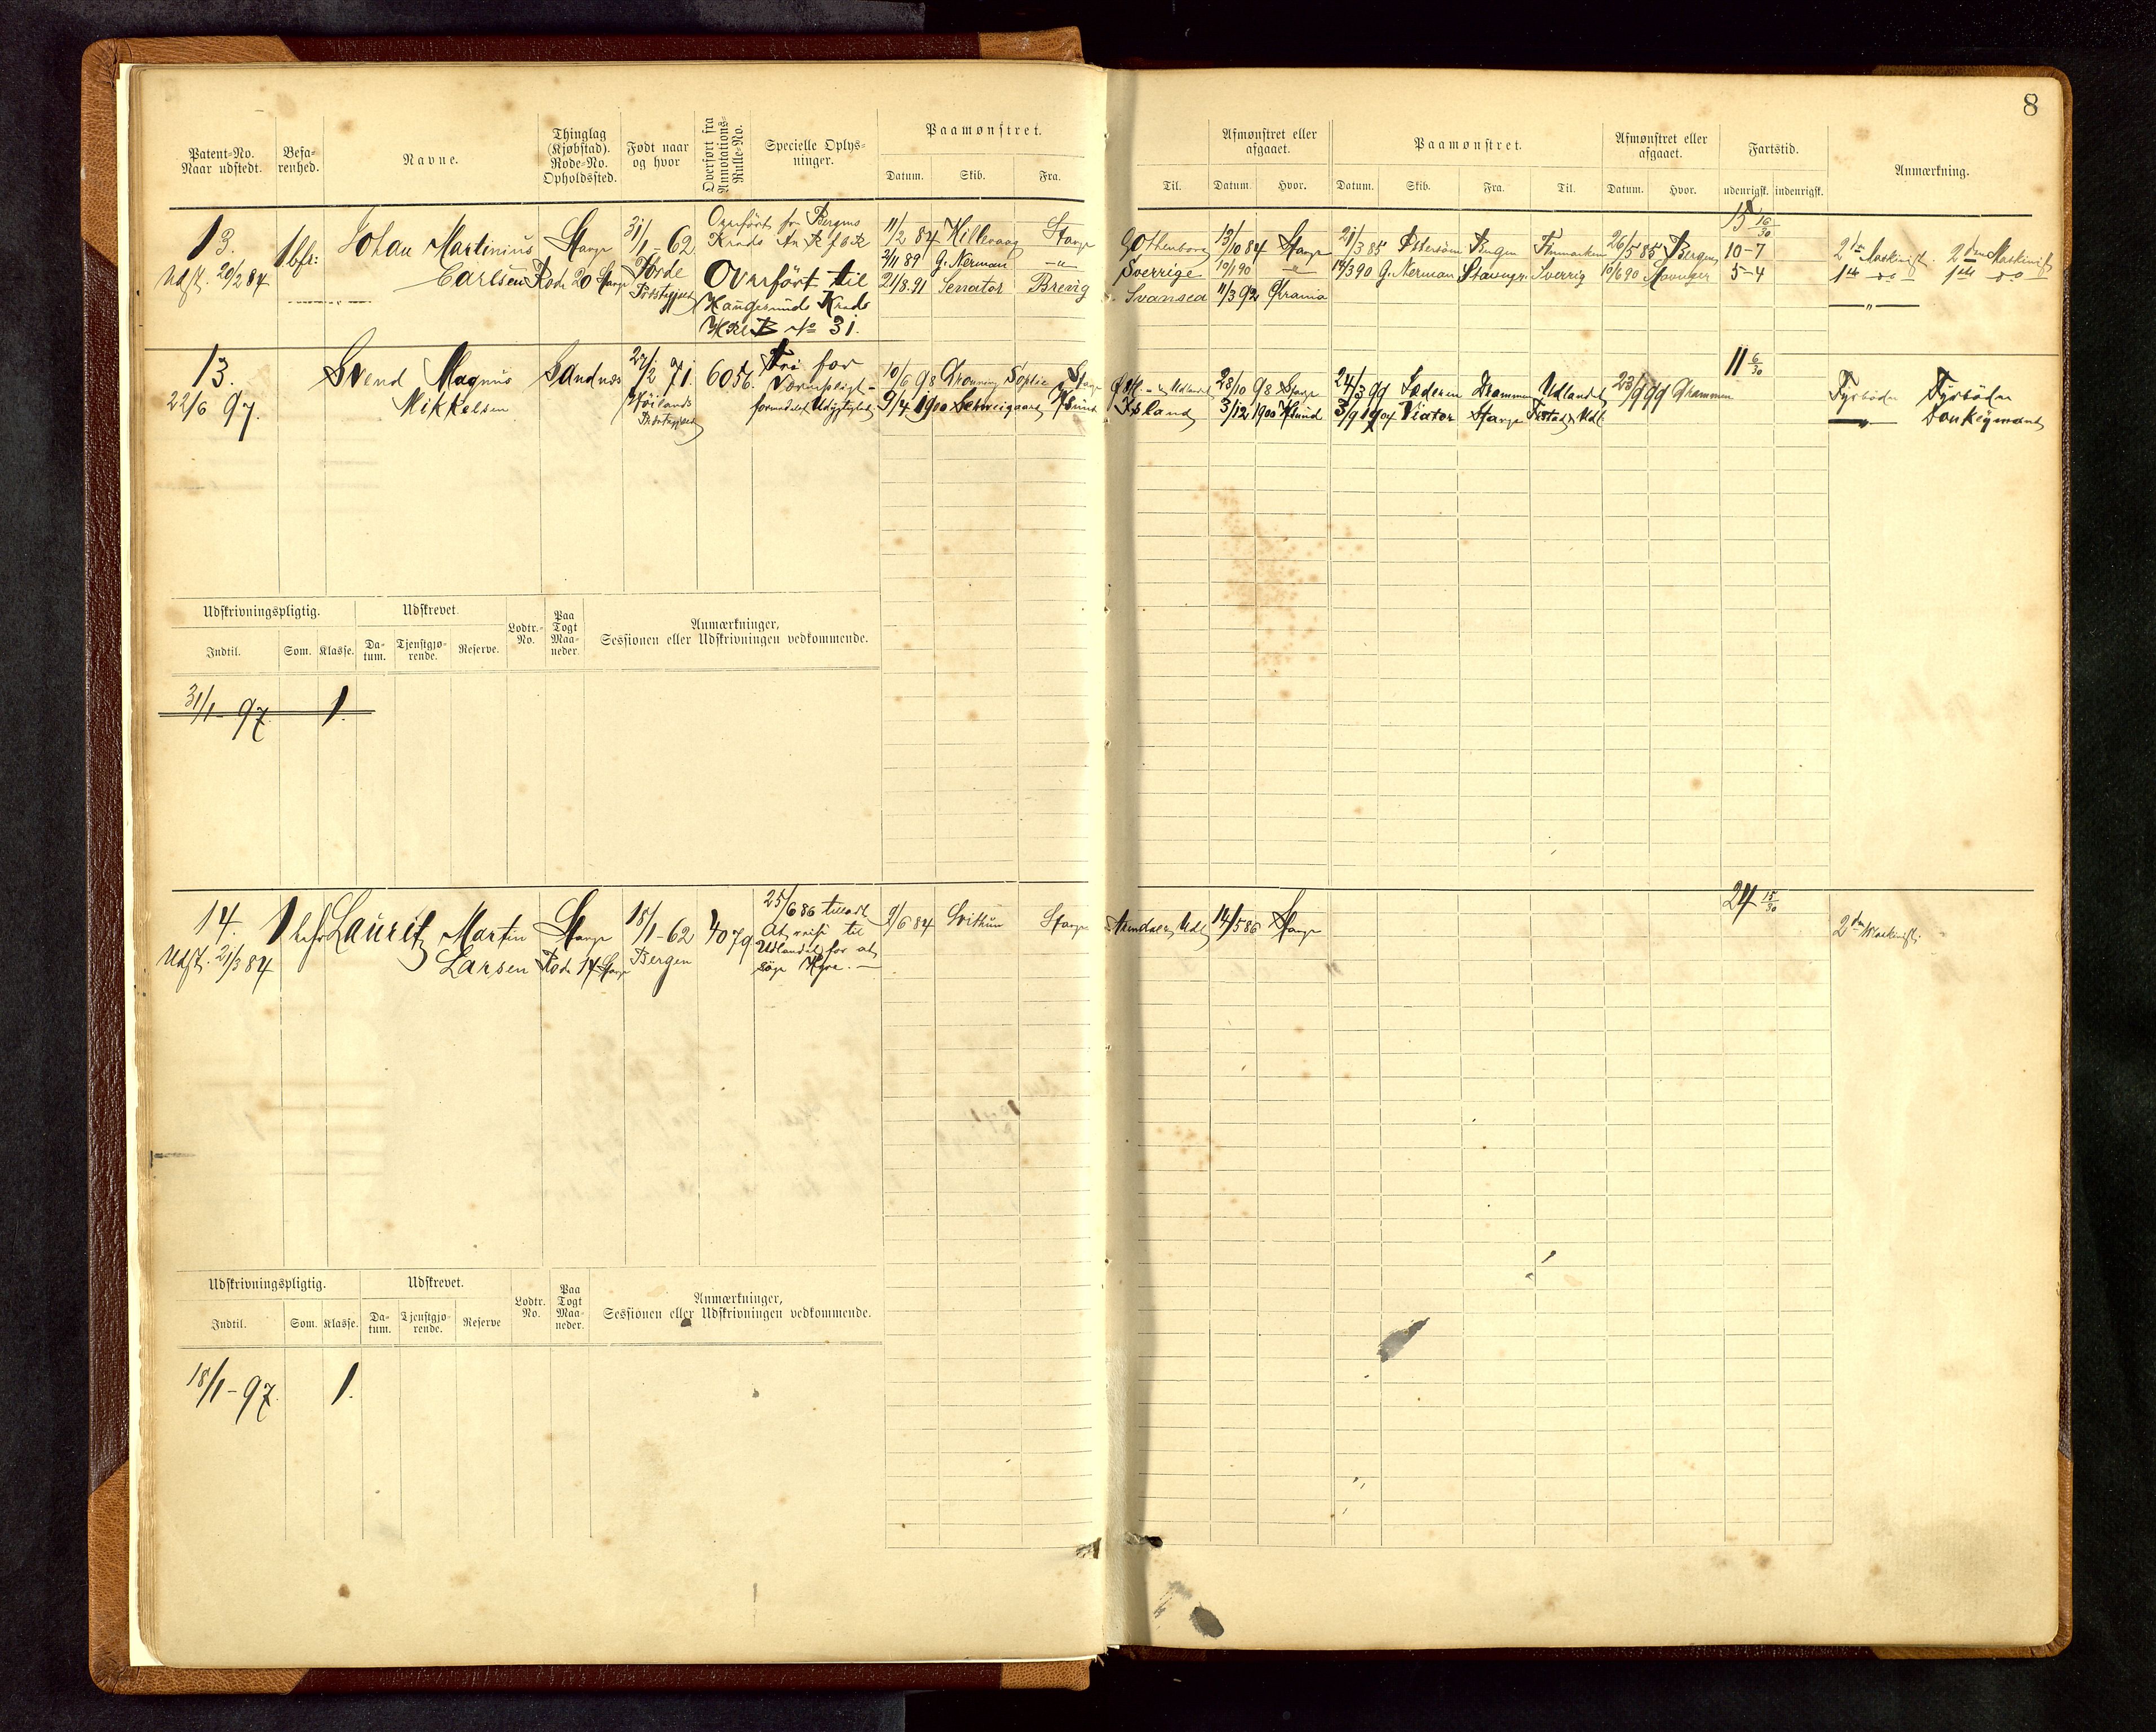 8
Patent-No. Naar udstedt.
Befa-renhed.
Navne.
Thinglag (Kjøbstad). Rode-No. Opholdssted.
Født naar og hvor
Overført fra Annotations-Rulle-No.
Specielle Oplys-ninger.
Paamønstret.
Datum. Skib. Fra.
Til.
Afmønstret eller afgaaet.
Datum. Hvor.
Paamønstret.
Datum. Skib. Fra. Til.
Afmønstret eller afgaaet.
Datum. Hvor.
Fartstid.
udenrigsk. indenrigsk.
Anmærkning.
13.
Udst. 20/2 84
1 bfr:
Johan Martinius
Carlsen
Stavgr
Rode 20 Stavgr
31/1-62
Førde
Præstegjeld
Overført fr Bergens
Overført til
Haugesunds Krads
No 31.
11/2 84 Killevaag Stavgr Gothenborg 13/10 84 Stavgr 21/3 85 Bergen Finmarken 26/5 85 Bergen 10-7
2/11 89 G. Nerman -"- Sverrige 19/1 90 -"- 14/3 90 G. Nerman Stavanger Sverrig 10/6 90 Stavanger 5-4
21/8.91 Senator Brevig Svansea 11/3 92 Chrania
15 16/30
2den Maskinist. 2den Maskinist
1ste do 1ste do
-"-
13.
22/6 97.
Svend Magnus
Mikkelsen
Sandnes
27/2 71.
Høilands
Præstegjeld
6056.
Fri for
Værnepligt
formedelst Udygtighed
10/6 98 Dronning Sophie Stavgr Udlandet 28/10 98 Stavgr 24/3 99 Drammen Udlandet 23/9 99 Drammen
9/4 1900 Schweigaard Hsund Island 3/12 1900 Hsund 3/9 1904 Viator Stavgr Udl.
11 6/30
Fyrbøder Fyrbøder
-"- Donkeymand
Udskrivningspligtig. Udskrevet.
Indtil. Som. Klasse. Da-tum. Tjenstgjø-rende. Reserve.
Lodtr.-No.
Paa Togt Maa-neder.
Anmærkninger, Sessionen eller Udskrivningen vedkommende.
31/1-97. 1.
14.
Udst. 21/3 84
1 befr
Lauritz Martin
Larsen
Stavgr
Rode 14 Stavgr
18/1-62
Bergen
4079
25/6 86 tilladt
At reise til
Udlandet for at
søge Hyre.
9/6 84 Svithun Stavgr Arendal & Udl 14/5 86 Stavgr
24 15/30
2den Maskinist.
Udskrivningspligtig. Udskrevet.
Indtil. Som. Klasse. Da-tum. Tjenstgjø-rende. Reserve
Lodtr. No.
Paa Togt Maa-neder.
Anmærkninger, Sessionen eller Udskrivningen vedkommende.
18/1-97. 1.